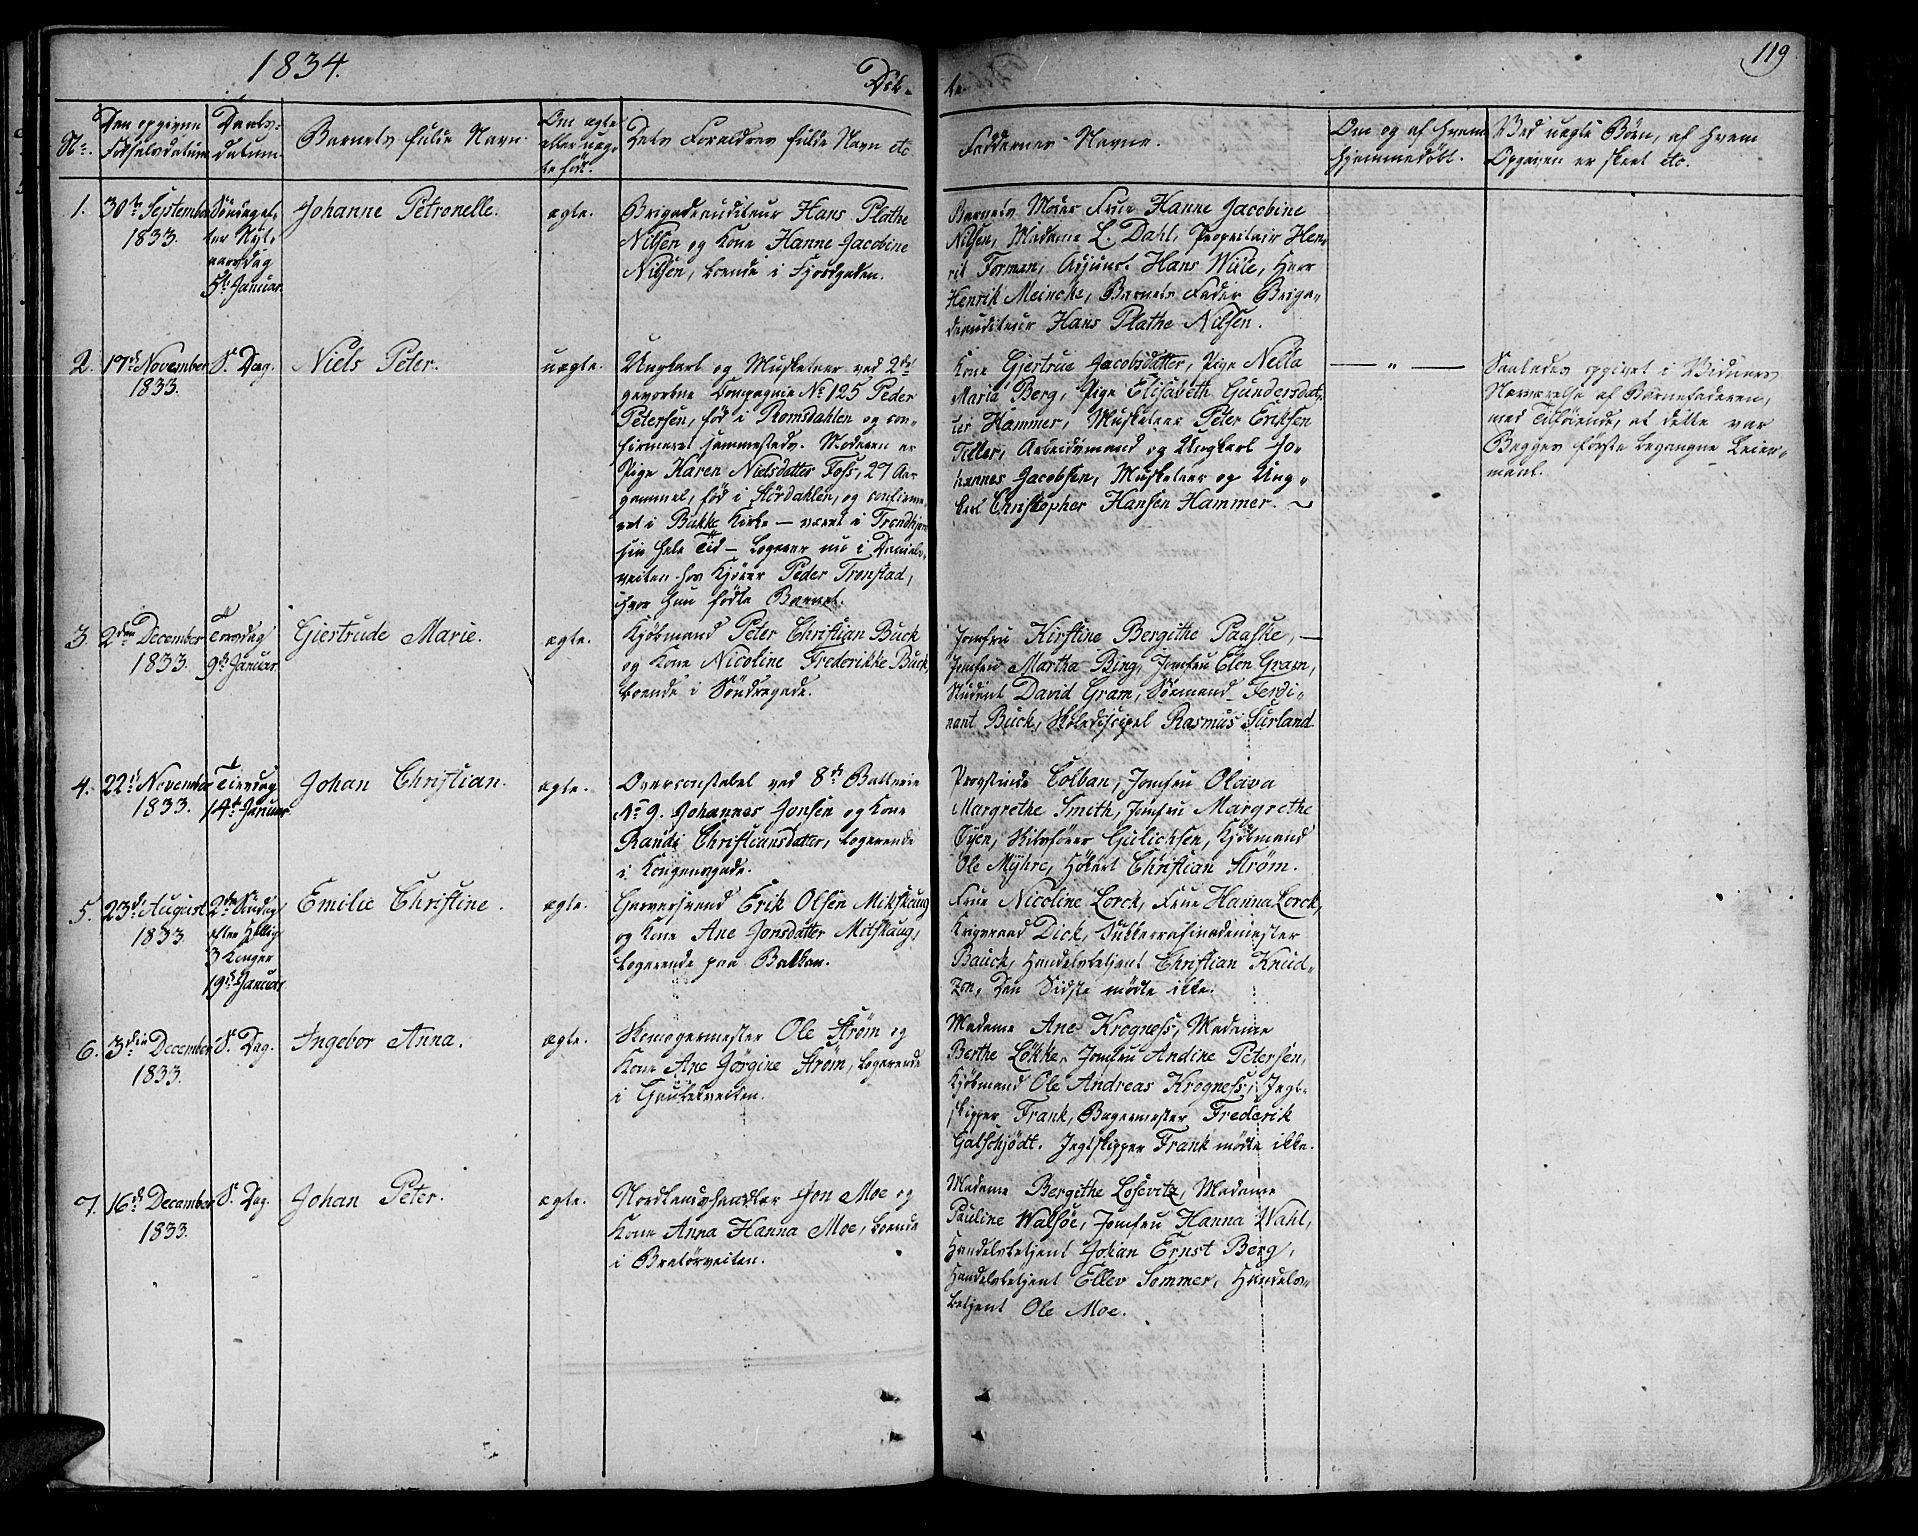 1834.
Døb-
te.
119
No.
Den opgivne
Fødselsdatum
Daabs-
datum
Barnets fulde Navn
Om ægte
eller uæg-
te født.
Dets Forældres fulde Navn etc
Faddernes Navne.
Om og af hvem
hjemmedøbt.
Ved uægte Børn, af hvem
Opgaven er skeet etc.
1.
30te September
1833.
Søndag ef-
ter Nyt-
aarsdag
5te Januar
Johanne Petronelle.
ægte.
Brigadeauditeur Hans Plathe
Nilsen og Kone Hanne Jacobine
Nilsen, boende i Fjordgaden.
Barnets Moder Frue Hanne Jacobine
Nilsen, Madame L. Dahl, Proprietair Hen-
rik Forman, Adjunct Hans Wille, Herr
Henrik Meincke, Barnets Fader Briga-
deauditeur Hans Plathe Nilsen.
2.
17de November
1833.
S. Dag.
Niels Peter.
uægte.
Ungkarl og Musketeer ved 2det
gevorbne Compagnie No 125 Peder
Petersen, fød i Romsdahlen og con-
firmeret sammesteds. Moderen er
Pige Karen Nielsdatter Foss, 27 Aar
gammel, fød i Størdahlen, og confirme-
ret i Bakke Kirke — været i Trondhjem
sin hele Tid — logerer nu i Daniels-
veiten hos Kjører Peder Tronstad,
hvor hun fødte Barnet.
Kone Giertrue Jacobsdatter, Pige Nella
Maria Berg, Pige Elisabeth Gundersdat-
ter Hammer, Musketeer Peter Eriksen
Tiller, Arbeidsmand og Ungkarl Jo-
hannes Jacobsen, Musketeer og Ung-
karl Christopher Hansen Hammer. ~
— „ —
Saaledes opgivet i Vidners
Nærværelse af Barnefaderen,
med Tilføiende, at dette var
Begges første begangne Leier-
maal.
3.
2den December
1833.
Torsdag
9de Januar
Giertrude Marie.
ægte.
Kjøbmand Peter Christian Buck
og Kone Nicoline Frederikke Buck,
boende i Søndregade.
Jomfru Kirstine Bergithe Paaske, —
Jomfru Martha Bing, Jomfru Elen Gram,
Student David Gram, Sømand Ferdi-
nant Buck, Skoledisipel Rasmus Surland
4.
22de November
1833.
Tirsdag
14de Januar
Johan Christian.
ægte.
Overconstabel ved 8de Batterie
No 9. Johannes Jonsen og Kone
Randi Christiansdatter, logerende
i Kongensgade.
Provstinde Colban, Jomfru Olava
Margrethe Smith, Jomfru Margrethe
Øyen, Skibsfører Gulicksen, Kjøbmand
Ole Myhre, Høker Christian Strøm.
5.
23de August
1833.
2den Søndag
efter Hellig
3 Konger
19de Januar
Emilie Christine.
ægte.
Garversvend Erik Olsen Mitskaug
og Kone Ane Jonsdatter Mitskaug,
logerende paa Bakken.
Frue Nicoline Lorck, Frue Hanna Lorck,
Krigsraad Dick, Sukkerrafinademester
Bauck, Handelsbetjent Christian Knud-
zon, Den Sidste mødte ikke.
6.
3die December
1833.
S. Dag.
Ingebor Anna.
ægte.
Skomagermester Ole Strøm og
Kone Ane Jørgine Strøm, logerende
i Gaubekveiten.
Madame Ane Krogness, Madame
Berthe Løkke, Jomfru Andine Petersen,
Kjøbmand Ole Andreas Krogness, Jegt-
skipper Frank, Bagermester Frederik
Galschjødt. Jegtskipper Frank mødte ikke.
7.
16de December
1833.
S. Dag.
Johan Peter.
ægte.
Nordlandshandler Jon Moe og
Kone Anna Hanna Moe, boende
i Bratørveiten.
Madame Bergithe Losevitz, Madame
Pauline Walsøe, Jomfru Hanna Wahl,
Handelsbetjent Johan Ernst Berg,
Handelsbetjent Ellev Sommer, Handels-
betjent Ole Moe.